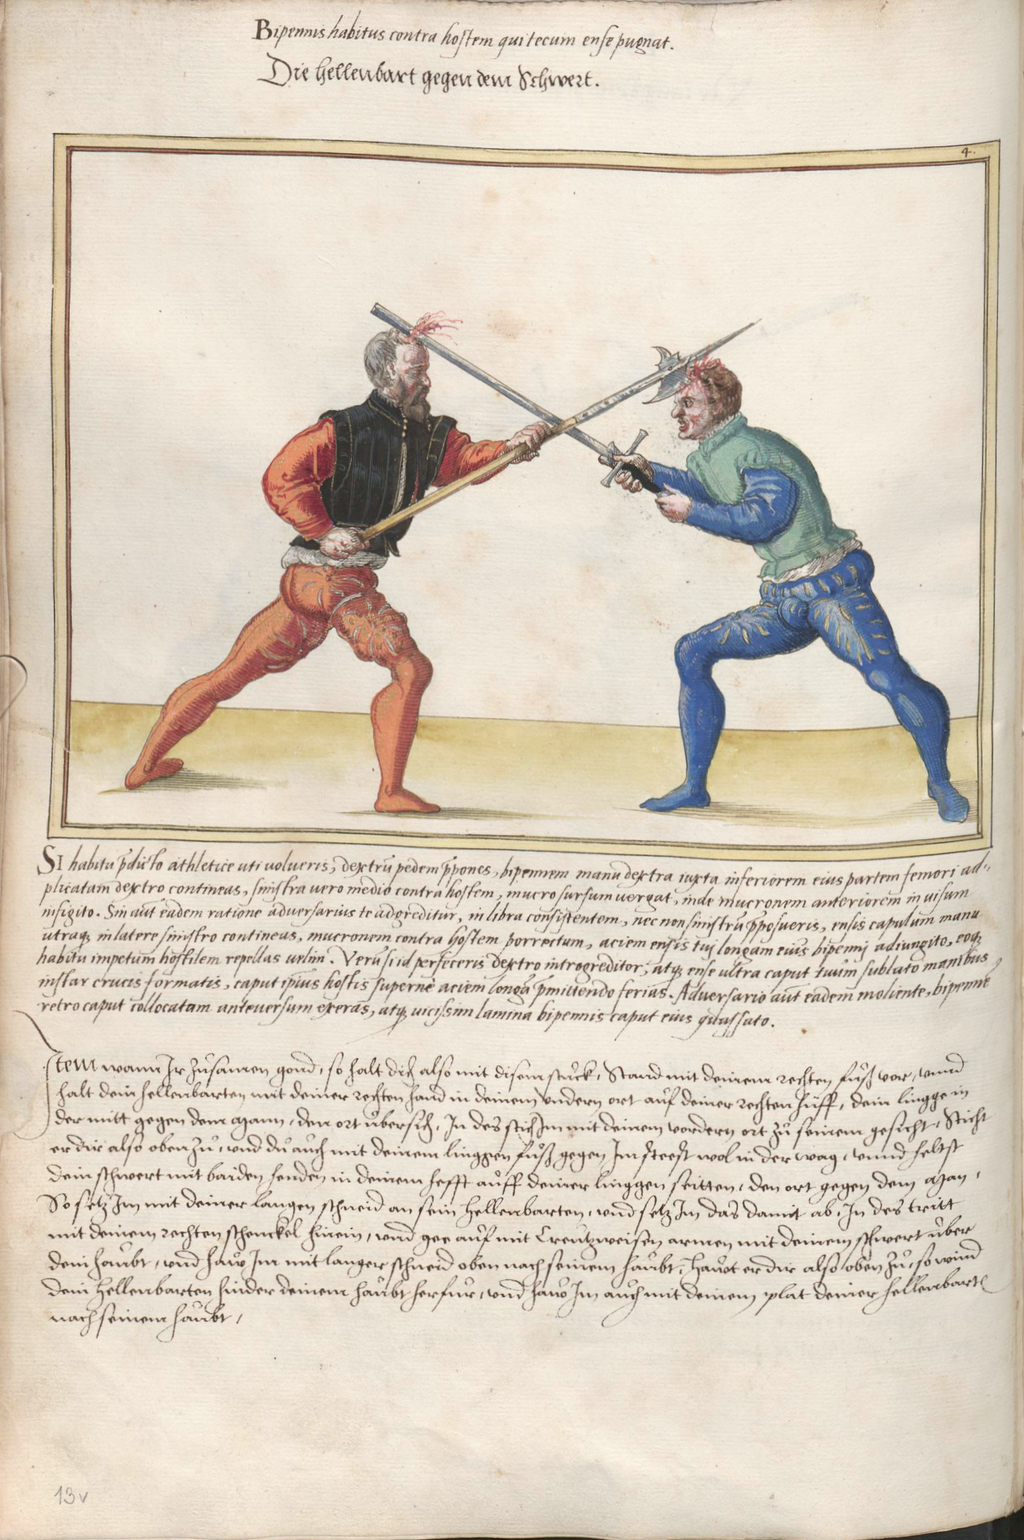 Bipennis habitus contra hostem qui tecum ense pugnat.
Die hellenbart gegen dem Schwert.
4.
SI habitu p̄dicto athletice uti volueris, dextrū pedem p̄pones, bipennem manu dextra iuxta inferiorem eius partem femori ad-
plicatam dextro contineas, sinistra vero medio contra hostem, mucro sursum vergat, inde mucronem anteriorem in visum
infigito. Sin aūt eadem ratione adversarius te adgreditur, in libra consistentem, nec non sinistrū p̄posueris, ensis capulum manu
utraq, in latere sinistro contineas, mucronem contra hostem porrectum, aciem ensis tuj longam eius bipennj adiungito, eoq,
habitu impetum hostilem repellas Verum si id perfeceris dextro introgreditor, atq, ense ultra caput tuūm sublato manibus
instar crucis formatis, caput ipsius hostis supernè aciem longā p̄mittendo ferias. Adversario aūt eadem moliente, bipennē
retro caput collocatam anteversum exeras, atq, vicissim lamina bipennis caput eius quassato.
Item wann Ir zusamen gond, so halt dich also mit disem stuck, Stand mit deinem rechten fuß vor, unnd
halt dein hellenbarten mit deiner rechten hand in deinem undern ort auf deiner rechten hüff, dein lingge in
der mitt gegen dem mann, den ort übersich, In des stich Im mit deinem vordern ort zu seinem gesicht, Sticht
er dir also oben zu, und du auch mit deinem linggen fuß gegen Im steest wol in der wag, unnd heltst
dein schwert mit baiden henden in deinem hefft auff deiner linggen seitten, den ort gegen dem man,
So setz Im mit deiner langen schneid an sein hellenbarten, und setz Im das damit ab, In des tritt
mit deinem rechten schenckel hinein, und gee auf mit Creutzweisen armen mit deinem schwert über
dein haubt, und haw Im mit langer schneid oben nach seinem haubt, hawt er dir also oben zu, so wind
dein hellenbarten hinder deinem haubt herfur, und haw Im auch mit deinem plat deiner hellenbarten
nach seinem haubt,
13v